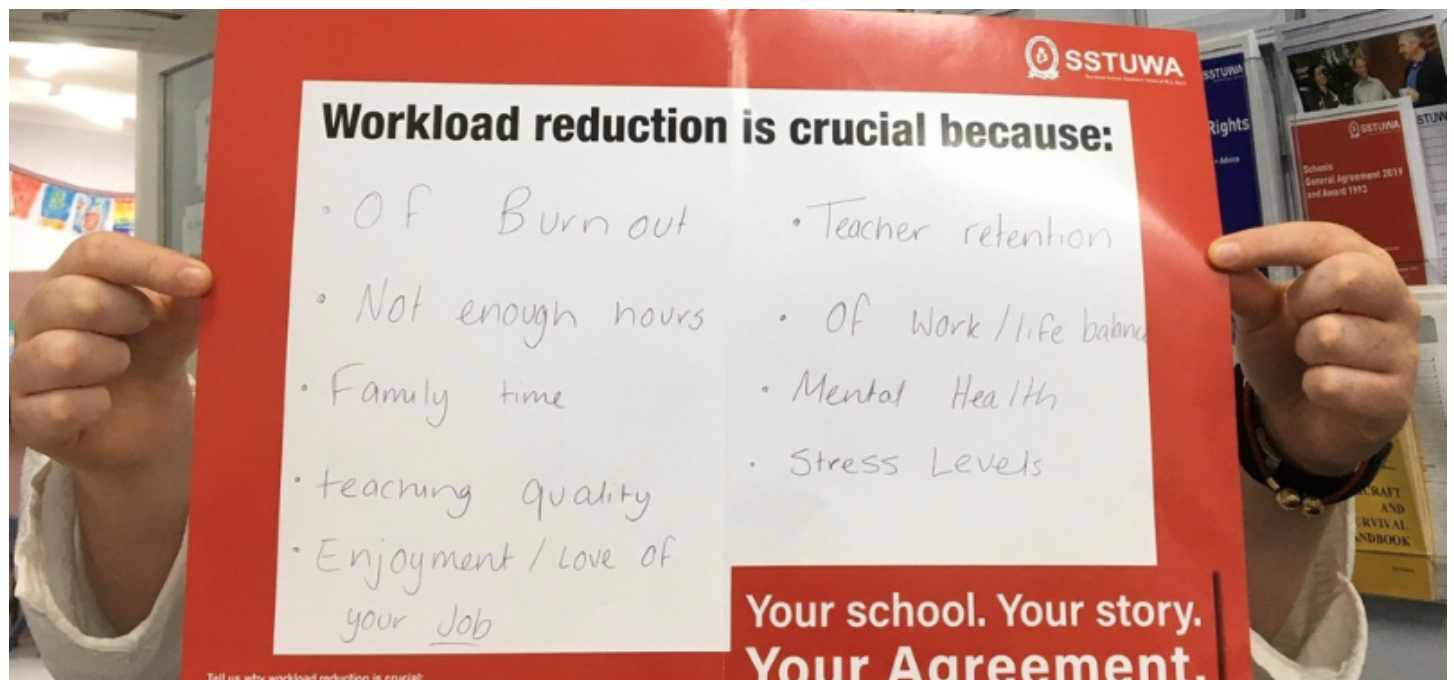 SSTUWA
Workload reduction is crucial because:
• Of Burn out
• Not enough hours
• Family time
• teaching quality
• Enjoyment / Love of
your Job
• Teacher retention
• Of Work / life balance
• Mental Health
• Stress Levels
Your school. Your story.
Your Agreement.
Tell us why workload reduction is crucial:
SSTUWA
Rights
• Advice
SSTUWA
Schools
General Agreement 2019
and Award 1993
STUW
CRAFT
AND
URVIVAL
ANDBOOK